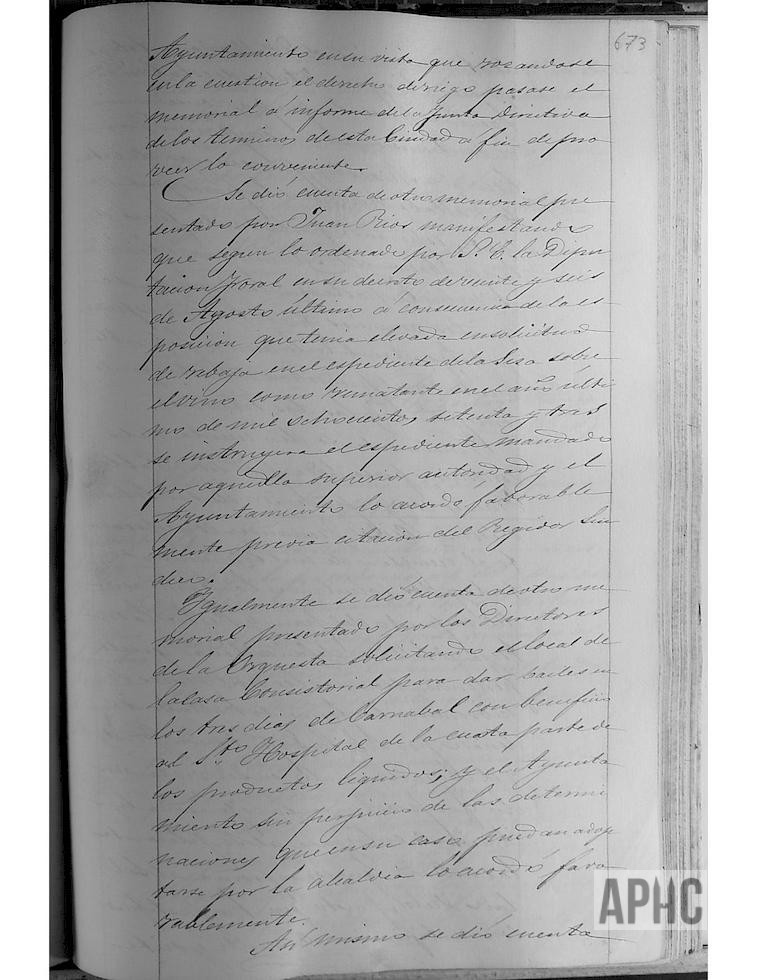 673
Ayuntamiento en su vista que rosandose
en la cuestion el derecho de riego pasase el
memorial á informe de la Junta Directiva
de los terminos de esta Ciudad á fin de pro
veer lo conveniente.
Se dió cuenta de otro memorial pre
sentado por Juan Rios manifestando
que segun lo ordenado por S. E. la Dipu
tacion Foral en su decreto de veinte y seis
de Agosto último á consecuencia de la es
posicion que tenia elevada en solicitud
de rebaja en el espediente de la Sisa sobre
el vino como rematante en el año últi
mo de mil ochocientos setenta y tres
se instruyera el espediente mandado
por aquella superior autoridad y el
Ayuntamiento lo acordó favorable
mente previa citacion del Regidor Sin
dico.
Igualmente se dió cuenta de otro me
morial presentado por los Directores
de la Orquesta solicitando el local de
la Casa Consistorial para dar bailes en
los tres dias de Carnabal con beneficio
al Sto. Hospital de la cuarta parte de
los productos liquidos; y el Ayunta
miento sin perjuicio de las determi
naciones que en su caso puedan adop
tarse por la Alcaldia lo acordó favo
rablemente.
Asi mismo se dió cuenta
APHC